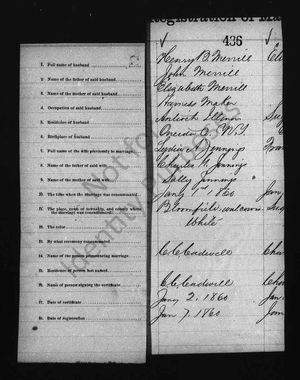 Registration of Ma
436
1. Full name of husband
2. Name of the father of said husband
3. Name of the mother of said husband
4. Occupation of said husband
5. Residence of husband
6. Birthplace of husband
7. Full name of the wife previously to marriage
8. Name of the father of said wife
9. Name of the mother of said wife
10. The time when the marriage was consummated
11. The place, town or township, and county where the marriage was consummated
12. The color
13. By what ceremony consummated
14. Name of the person pronouncing marriage
15. Residence of person last named
16. Name of person signing the certificate
17. Date of certificate
18. Date of registration
Henry B. Merrill
John Merrill
Elizabeth Merrill
Harness Maker
Antioch Illinois
Oneida C. N.Y.
Lydia A. Jennings
Charles H. Jennings
Sally Jennings "
Jany 1st 1860
Bloomfield, walworth
White
C. C. Cadwell
C. C. Cadwell
Jany 2, 1860
Jan 7. 1860
Not for